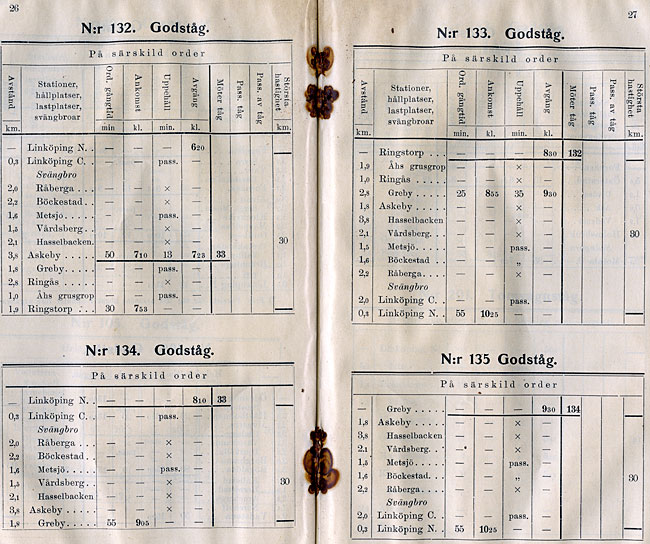 26
N:r 132. Godståg.
På särskild order
Avstånd Stationer, hållplatser, lastplatser, svängbroar Ord. gångtid Ankomst Uppehåll Avgång Möter tåg Pass. tåg Pass. av tåg Största hastighet
km. min kl. min. kl. km.
Linköping N. . — — — 620
0,3 Linköping C. . — — pass. —
Svängbro
2,0 Råberga . . . — — × —
2,2 Böckestad . . — — × —
1,6 Metsjö . . . . . — — pass. —
1,5 Vårdsberg . . — — × —
2,1 Hasselbacken — — × — 30
3,8 Askeby . . . . . 50 710 13 723 33
1,8 Greby . . . . . — — pass. —
2,8 Ringås . . . . . — — × —
1,0 Åhs grusgrop — — pass. —
1,9 Ringstorp . . . 30 753
N:r 134. Godståg.
På särskild order
— Linköping N. . — — — 810 33
0,3 Linköping C. . — — pass. —
Svängbro
2,0 Råberga . . . — — × —
2,2 Böckestad . . — — × —
1,6 Metsjö . . . . . — — pass. —
1,5 Vårdsberg . . — — × — 30
2,1 Hasselbacken — — × —
3,8 Askeby . . . . . — — × —
1,8 Greby . . . . . 55 905 — —
27
N:r 133. Godståg.
På särskild order
Avstånd Stationer, hållplatser, lastplatser, svängbroar Ord. gångtid Ankomst Uppehåll Avgång Möter tåg Pass. tåg Pass. av tåg Största hastighet
km. min kl. min. kl. km.
— Ringstorp . . . — — — 830 132
1,9 Åhs grusgrop — — × —
1,0 Ringås . . . . . — — × —
2,8 Greby . . . . . 25 855 35 930
1,8 Askeby . . . . . — — × —
3,8 Hasselbacken — — × —
2,1 Vårdsberg. . — — × — 30
1,5 Metsjö . . . . . — — pass. —
1,6 Böckestad . . — — „ —
2,2 Råberga. . . . — — × —
Svängbro
2,0 Linköping C. . — — pass. —
0,3 Linköping N. . 55 1025 — —
N:r 135 Godståg.
På särskild order
— Greby . . . . . — — — 930 134
1,8 Askeby . . . . . — — × —
3,8 Hasselbacken — — × —
2,1 Vårdsberg. . — — × —
1,5 Metsjö . . . . . — — pass. —
1,6 Böckestad. . . — — „ — 30
2,2 Råberga. . . . — — × —
Svängbro
2,0 Linköping C. . — — pass. —
0,3 Linköping N. . 55 1025 — —